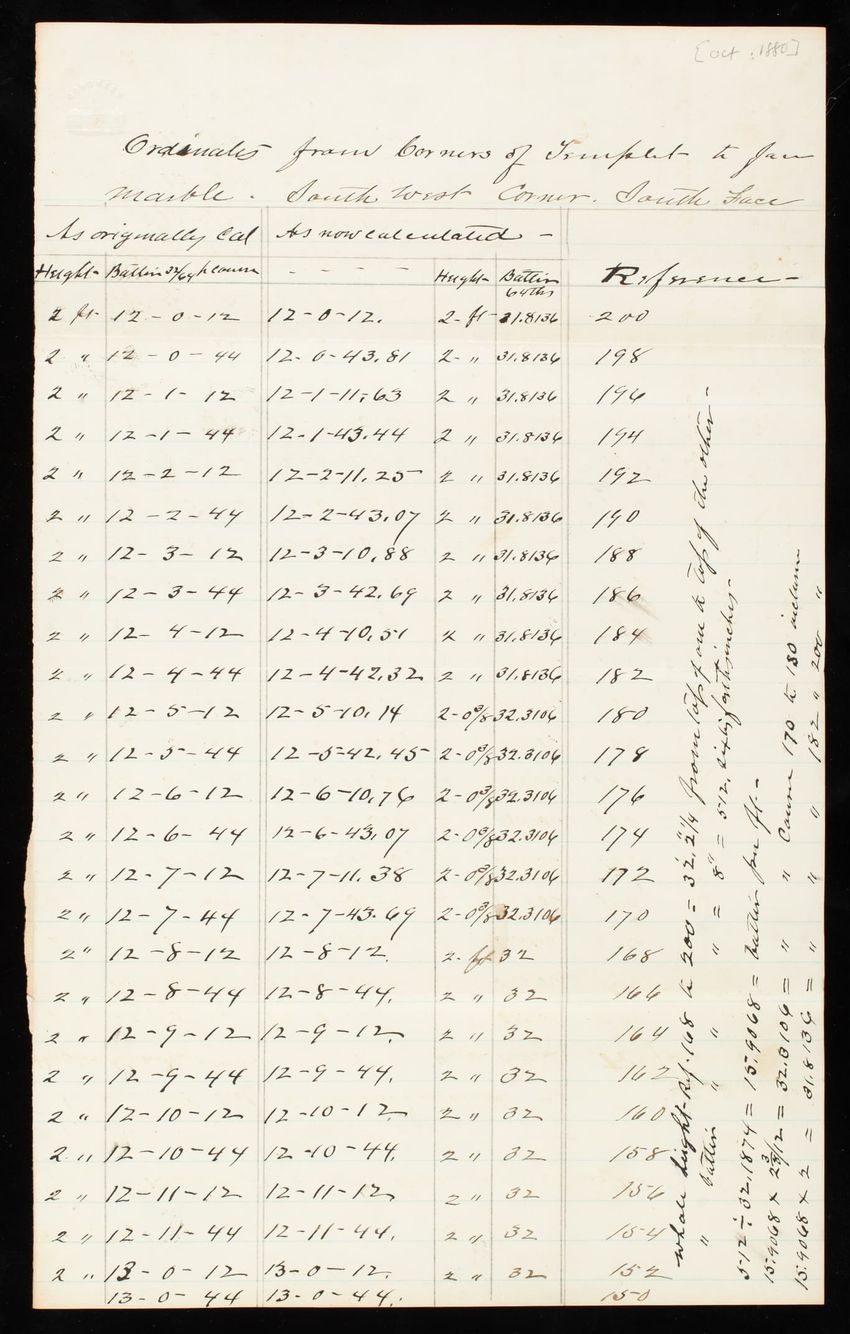 [Oct. 1880]
Ordinates from Corners of Templet to face
marble. South West Corner. South Face
As originally Cal As now calculated -
Height Battin 32/64 p course - - - - Height Battin 64ths Reference -
2 ft 12 - 0 - 12 12 - 0 - 12. 2 - ft 31.8136 200
2 " 12 - 0 - 44 12 - 0 - 43.81 2 - " 31.8136 198
2 " 12 - 1 - 12 12 - 1 - 11.63 2 " 31.8136 196
2 " 12 - 1 - 44 12 - 1 - 43.44 2 " 31.8136 194
2 " 12 - 2 - 12 12 - 2 - 11.25 2 " 31.8136 192
2 " 12 - 2 - 44 12 - 2 - 43.07 2 " 31.8136 190
2 " 12 - 3 - 12 12 - 3 - 10.88 2 " 31.8136 188
2 " 12 - 3 - 44 12 - 3 - 42.69 2 " 31.8136 186
2 " 12 - 4 - 12 12 - 4 - 10.51 2 " 31.8136 184
2 " 12 - 4 - 44 12 - 4 - 42.32 2 " 31.8136 182
2 " 12 - 5 - 12 12 - 5 - 10.14 2 - 0 3/8 32.3106 180
2 " 12 - 5 - 44 12 - 5 - 42.45 2 - 0 3/8 32.3106 178
2 " 12 - 6 - 12 12 - 6 - 10.76 2 - 0 3/8 32.3106 176
2 " 12 - 6 - 44 12 - 6 - 43.07 2 - 0 3/8 32.3106 174
2 " 12 - 7 - 12 12 - 7 - 11.38 2 - 0 3/8 32.3106 172
2 " 12 - 7 - 44 12 - 7 - 43.69 2 - 0 3/8 32.3106 170
2 " 12 - 8 - 12 12 - 8 - 12. 2 - ft 32 168
2 " 12 - 8 - 44 12 - 8 - 44. 2 " 32 166
2 " 12 - 9 - 12 12 - 9 - 12. 2 " 32 164
2 " 12 - 9 - 44 12 - 9 - 44. 2 " 32 162
2 " 12 - 10 - 12 12 - 10 - 12 2 " 32 160
2 " 12 - 10 - 44 12 - 10 - 44. 2 " 32 158
2 " 12 - 11 - 12 12 - 11 - 12 2 " 32 156
2 " 12 - 11 - 44 12 - 11 - 44. 2 " 32 154
2 " 13 - 0 - 12 13 - 0 - 12. 2 " 32 152
13 - 0 - 44 13 - 0 - 44. 150
whole height Ref. 168 to 200 = 32' 2"1/4 from top of one to top of the other -
" battin " " " = 8" = 512. sixty fourths inches -
512 ÷ 32.1874 = 15.9068 = battin per ft. -
15.9068 x 2 3/8/12 = 32.3106 = " " Course 170 to 180 inclusive
15.9068 x 2 = 31.8136 = " " " 182 " 200 "